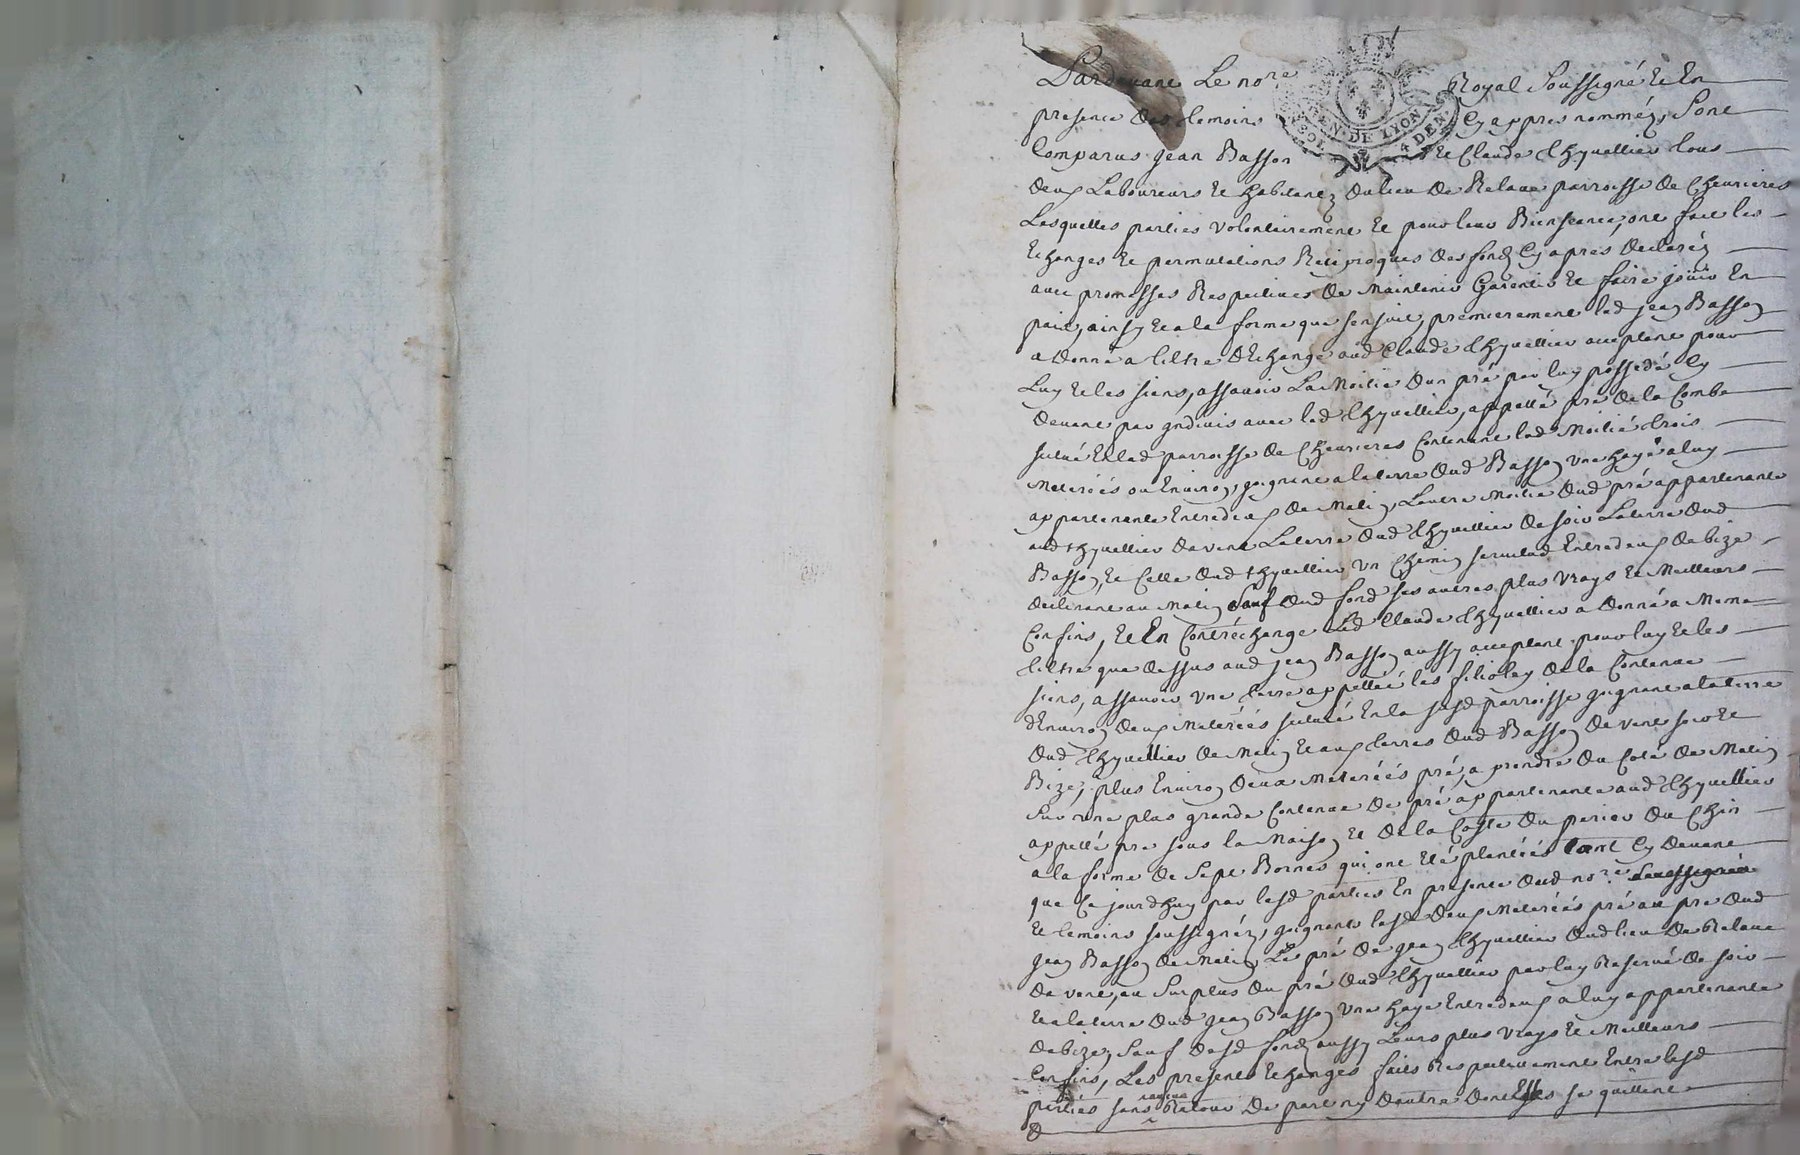 Pardevant Le no.re Royal Soussigné Et En
presence des temoins Cy appres nommés, Sont
GEN. DE LYON
4 DEN.
Comparus jean Basson Et Claude thyvellier tous
deux Laboureurs Et habitantz du lieu de Relave parroisse de Chevrieres
Lesquelles parties volontairement Et pour leur Bienseance, ont fait les
Echanges Et permutations Reciproques des fondz Cy apres declaréz
avec promesses Respectives de Maintenir Garentir Et faire jouir En
paix, ainsy Et a la forme que sensuit, premierement led jean Basson
a donné a tiltre dEchange aud Claude thyvellier acceptant pour
Luy Et les siens, assavoir La Moitié dun pré par luy possedé Cy
devant par indivis avec led thyvellier, appellé pré de la Combe
situé En lad parroisse de Chevrieres Contenant lad Moitié trois
Meterées ou Environ, joignant a la terre dud Basson une haye a luy
appartenante Entredeux de Matin, Lautre Moitié dud pré appartenante
aud thyvellier de vent La terre dud thyvellier de soir La terre dud
Basson Et Celle dud thyvellier un Chemin Entredeux de bize
declinant au Matin Sauf dud fond ses autres plus vrays Et Meilleurs
Confins, Et En Contréchange Led Claude thyvellier a donné a Meme
tiltre que dessus aud jean Basson aussy acceptant pour luy Et les
siens, assavoir une terre appellée les filioles de la Contenue
dEnviron deux Meterées située En la susd parroisse joignant a la terre
dud thyvellier de Matin Et aux terres dud Basson de vent soir Et
Bize, plus Environ deux Meterées pré, a prendre du Coté de Matin
Sur une plus grande Contenue de pré appartenante aud thyvellier
appellé pre sous la Maison Et de la Coste du perier du Chin
a la forme de Sept Bornes qui ont Eté plantées tant Cy devant
que Ce jourdhuy par lesd parties En presence dud no.re
Et temoins soussignéz, joignants lesd deux Meterées pré au pre dud
jean Basson de Matin, Le pré de jean thyvellier dud lieu de Relave
de vent, au Surplus du pré dud thyvellier par luy Reservé de soir
Et a la terre dud jean Basson une haye Entredeux a luy appartenante
de bize, Sauf desd fondz aussy Leurs plus vrays Et Meilleurs
Confins, Les presents Echanges faits Respectivement Entre lesd
parties sans Retour de part ny dautre dont Elles se quittent